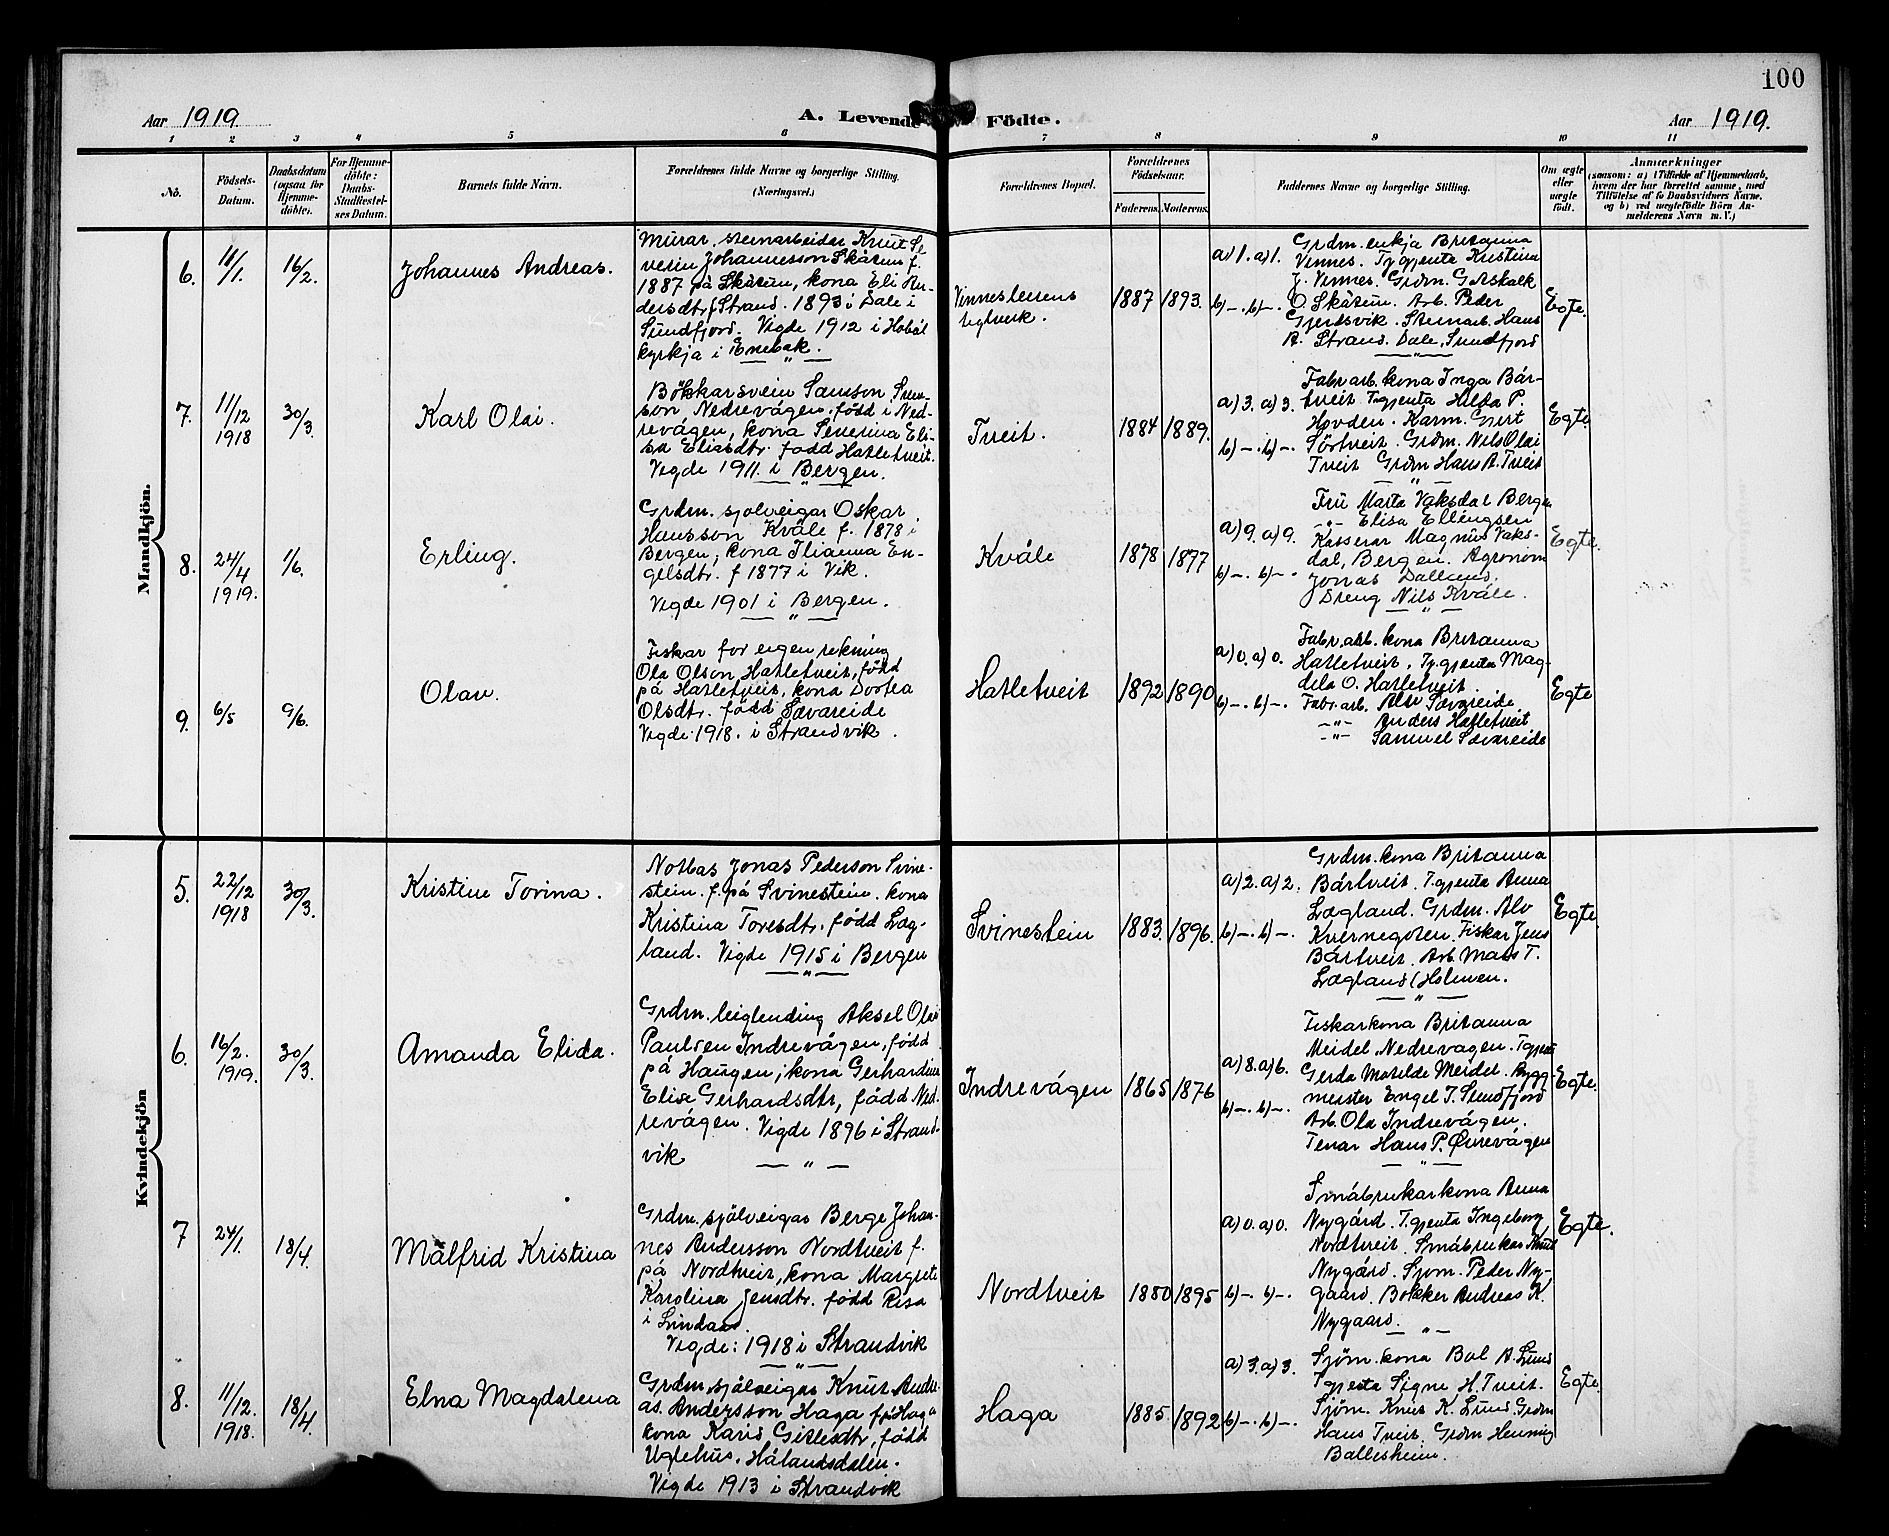 100
Aar 1919
A. Levende Födte.
Aar 1919.
1 2 3 4 5 6 7 8 9 10 11
No.
Födsels-
Datum.
Daabsdatum
(ogsaa for
Hjemme-
döbte).
For Hjemme-
döbte:
Daabs-
Stadfæstel-
ses Datum.
Barnets fulde Navn.
Forældrenes fulde Navne og borgerlige Stilling.
(Næringsvei.)
Forældrenes Bopæl.
Forældrenes
Födselsaar.
Faderens. Moderens.
Faddernes Navne og borgerlige Stilling.
Om ægte
eller
uægte
födt.
Anmærkninger
(saasom: a) i Tilfælde af Hjemmedaab,
hvem der har forrettet samme, med
Tilföielse af to Daabsvidners Navne.
og b) ved uægtefödte Börn An-
melderens Navn m. V.)
Mandkjön.
6.
11/1.
16/2.
Johannes Andreas.
Murar, steinarbeidar Knut Se-
verin Johannesson Skåtun f.
1887 på Skåtun, kona Eli An-
dersdtr. f Strand. 1893 i Dale i
Sundfjord. Vigde 1912 i Hobøl
kyrkja i Enebak.
Vinnesleirens
teglverk.
1887
1893.
a) 1. a) 1.
b) -. b) -.
Grdm. enkja Britanna
Vinnes. Tg.gjenta Kristina
J. Vinnes. Grdm. Gotskalk
O. Skåtun. Arb. Peder
Gjertsvik. Steinarb. Hans
A. Strand. Dale, Sundfjord
Egte.
7.
11/12
1918
30/3.
Karl Olai.
Bökkarsvein Samson Sven-
son, Nedrevågen, född i Ned-
revågen, kona Severina Eli-
sa Eliasdtr. född Hatletveit.
Vigde 1911. i Bergen.
Tveit.
1884
1889.
a) 3. a) 3.
b) -. b) -.
Fabr. arb. kona Inga Bår-
tveit T.gjenta Hilda P.
Hovden. Karm. Gjert
Sörtveit. Grdm. Nils Olai
Tveit Grdm Hans A. Tveit
Egte.
8.
24/4
1919.
1/6.
Erling.
Grdm. sjolveigar Oskar
Hansson Kvåle f. 1878 i
Bergen, kona Ilianna En-
gelsdtr. f 1877 i Vik.
Vigde 1901 i Bergen.
Kvåle
1878
1877
a) 9. a) 9.
b) -. b) -.
Fru Marta Vaksdal Bergen
-"- Elisa Ellingsen
Kasserar Magnus Vaks-
dal, Bergen. Agronom
Jonas Dalland.
Dreng Nils Kvåle.
Egte.
9.
6/5
9/6.
Olav.
Fiskar for eigen rekning
Ola Olson Hatletveit, född
på Hatletveit, kona Dortea
Olsdtr. född Sævareide
Vigde 1918. i Strandvik.
Hatletveit
1892
1890
a) 0. a) 0.
b) -. b) -.
Fabr. arb. kona Britanna
Hatletveit. Tg.gjenta Mag-
dela O. Hatletveit.
Fabr. arb. Peder Sævareide.
-"- Anders Hatletveit
-"- Samuel Sævareide
Egte
Kvindekjön
5.
22/12
1918
30/3.
Kristine Torina.
Notbas Jonas Pederson Svine-
stein. f. på Svinestein. kona
Kristina Toresdtr. född Læg-
land. Vigde 1915 i Bergen
Svinestein
1883.
1896.
a) 2. a) 2.
b) -. b) -.
Grdm. kona Britanna
Bårtveit. T.gjenta Anna
Lægland. Grdm. Alv
Kvernegoten. Fiskar Jens
Bårtveit. Arb. Mads T.
Lægland (Holmen.
Egte.
6.
16/2.
1919.
30/3.
Amanda Elida.
Grdm. leiglending Aksel Olai
Paulsen Indrevågen, född
på Haugen; kona Gerhardine
Elise Gerhardsdtr, född Ned-
revågen. Vigde 1896 i Strand-
vik
Indrevågen
1865
1876
a) 8. a) 6.
b) -. b) -.
Fiskarkona Britanna
Meidel, Nedrevagen. T.gjente
Gerda Matilde Meidel. Bygg
meister Engel T. Sundfjord
Arb. Ola Indrevågen.
Tenar Hans P. Øvrevågen
Egte.
7
24/1.
18/4.
Målfrid Kristina
Grdm. själveigar Berge Johan-
nes Andersson Nordtveit f.
på Nordtveit, kona Margrete
Karolina Jensdtr. född Risa
i Lindaas.
Vigde: 1918 i Strandvik
Nordtveit
1880
1895
a) 0. a) 0.
b) -. b) -.
Småbrukarkona Anna
Nygård. T.gjenta Ingeborg
Nordtveit. Småbrukar Knut
Nygård. Sjom. Peder Ny-
gaard. Bökker Andreas K.
Nygaard.
Egte.
8.
11/12.
1918.
18/4.
Elna Magdalena
Grdm. själveigar Knut Andre-
as Andersson Haga f. på Haga
kona Kari Gitlesdtr, född
Uglehus, Hålandsdalen.
Vigde 1913 i Strandvik
Haga
1885
1892
a) 3. a) 3.
b) -. b) -.
Sjöm. kona Bol A. Lund
T.gjenta Signe H. Tveit.
Sjöm. Knut K. Lund. Grdm
Hans Tveit. Grdm Henning
Ballesheim.
Egte.